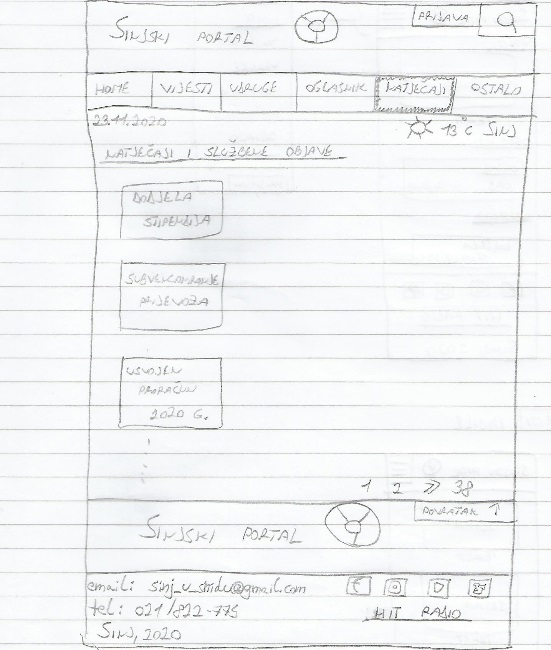 SINJSKI PORTAL
PRIJAVA
HOME VIJESTI UDRUGE OGLASNIK NATJEČAJI OSTALO
23.11.2020
13°C SINJ
NATJEČAJI I SLUŽBENE OBJAVE
DODJELA
STIPENDIJA
SUBVENCIONIRANJE
PRIJEVOZA
USVOJEN
PRORAČUN
2020 G.
1 2 >> 38
POVRATAK ↑
SINJSKI PORTAL
email: sinj_u_sridu@gmail.com
tel: 021/822-775
HIT RADIO
SINJ, 2020